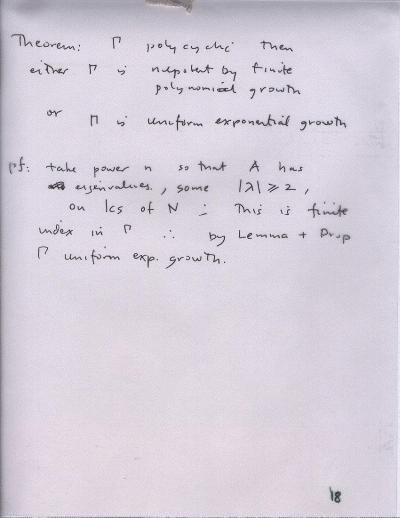 Theorem: Γ polycyclic then
either Γ is nilpotent by finite
polynomial growth
or Γ is uniform exponential growth
pf: take power n so that A has
eigenvalues, some |λ| ≥ 2,
on lcs of N ∴ This is finite
index in Γ ∴ by Lemma + Prop
Γ uniform exp. growth.
18